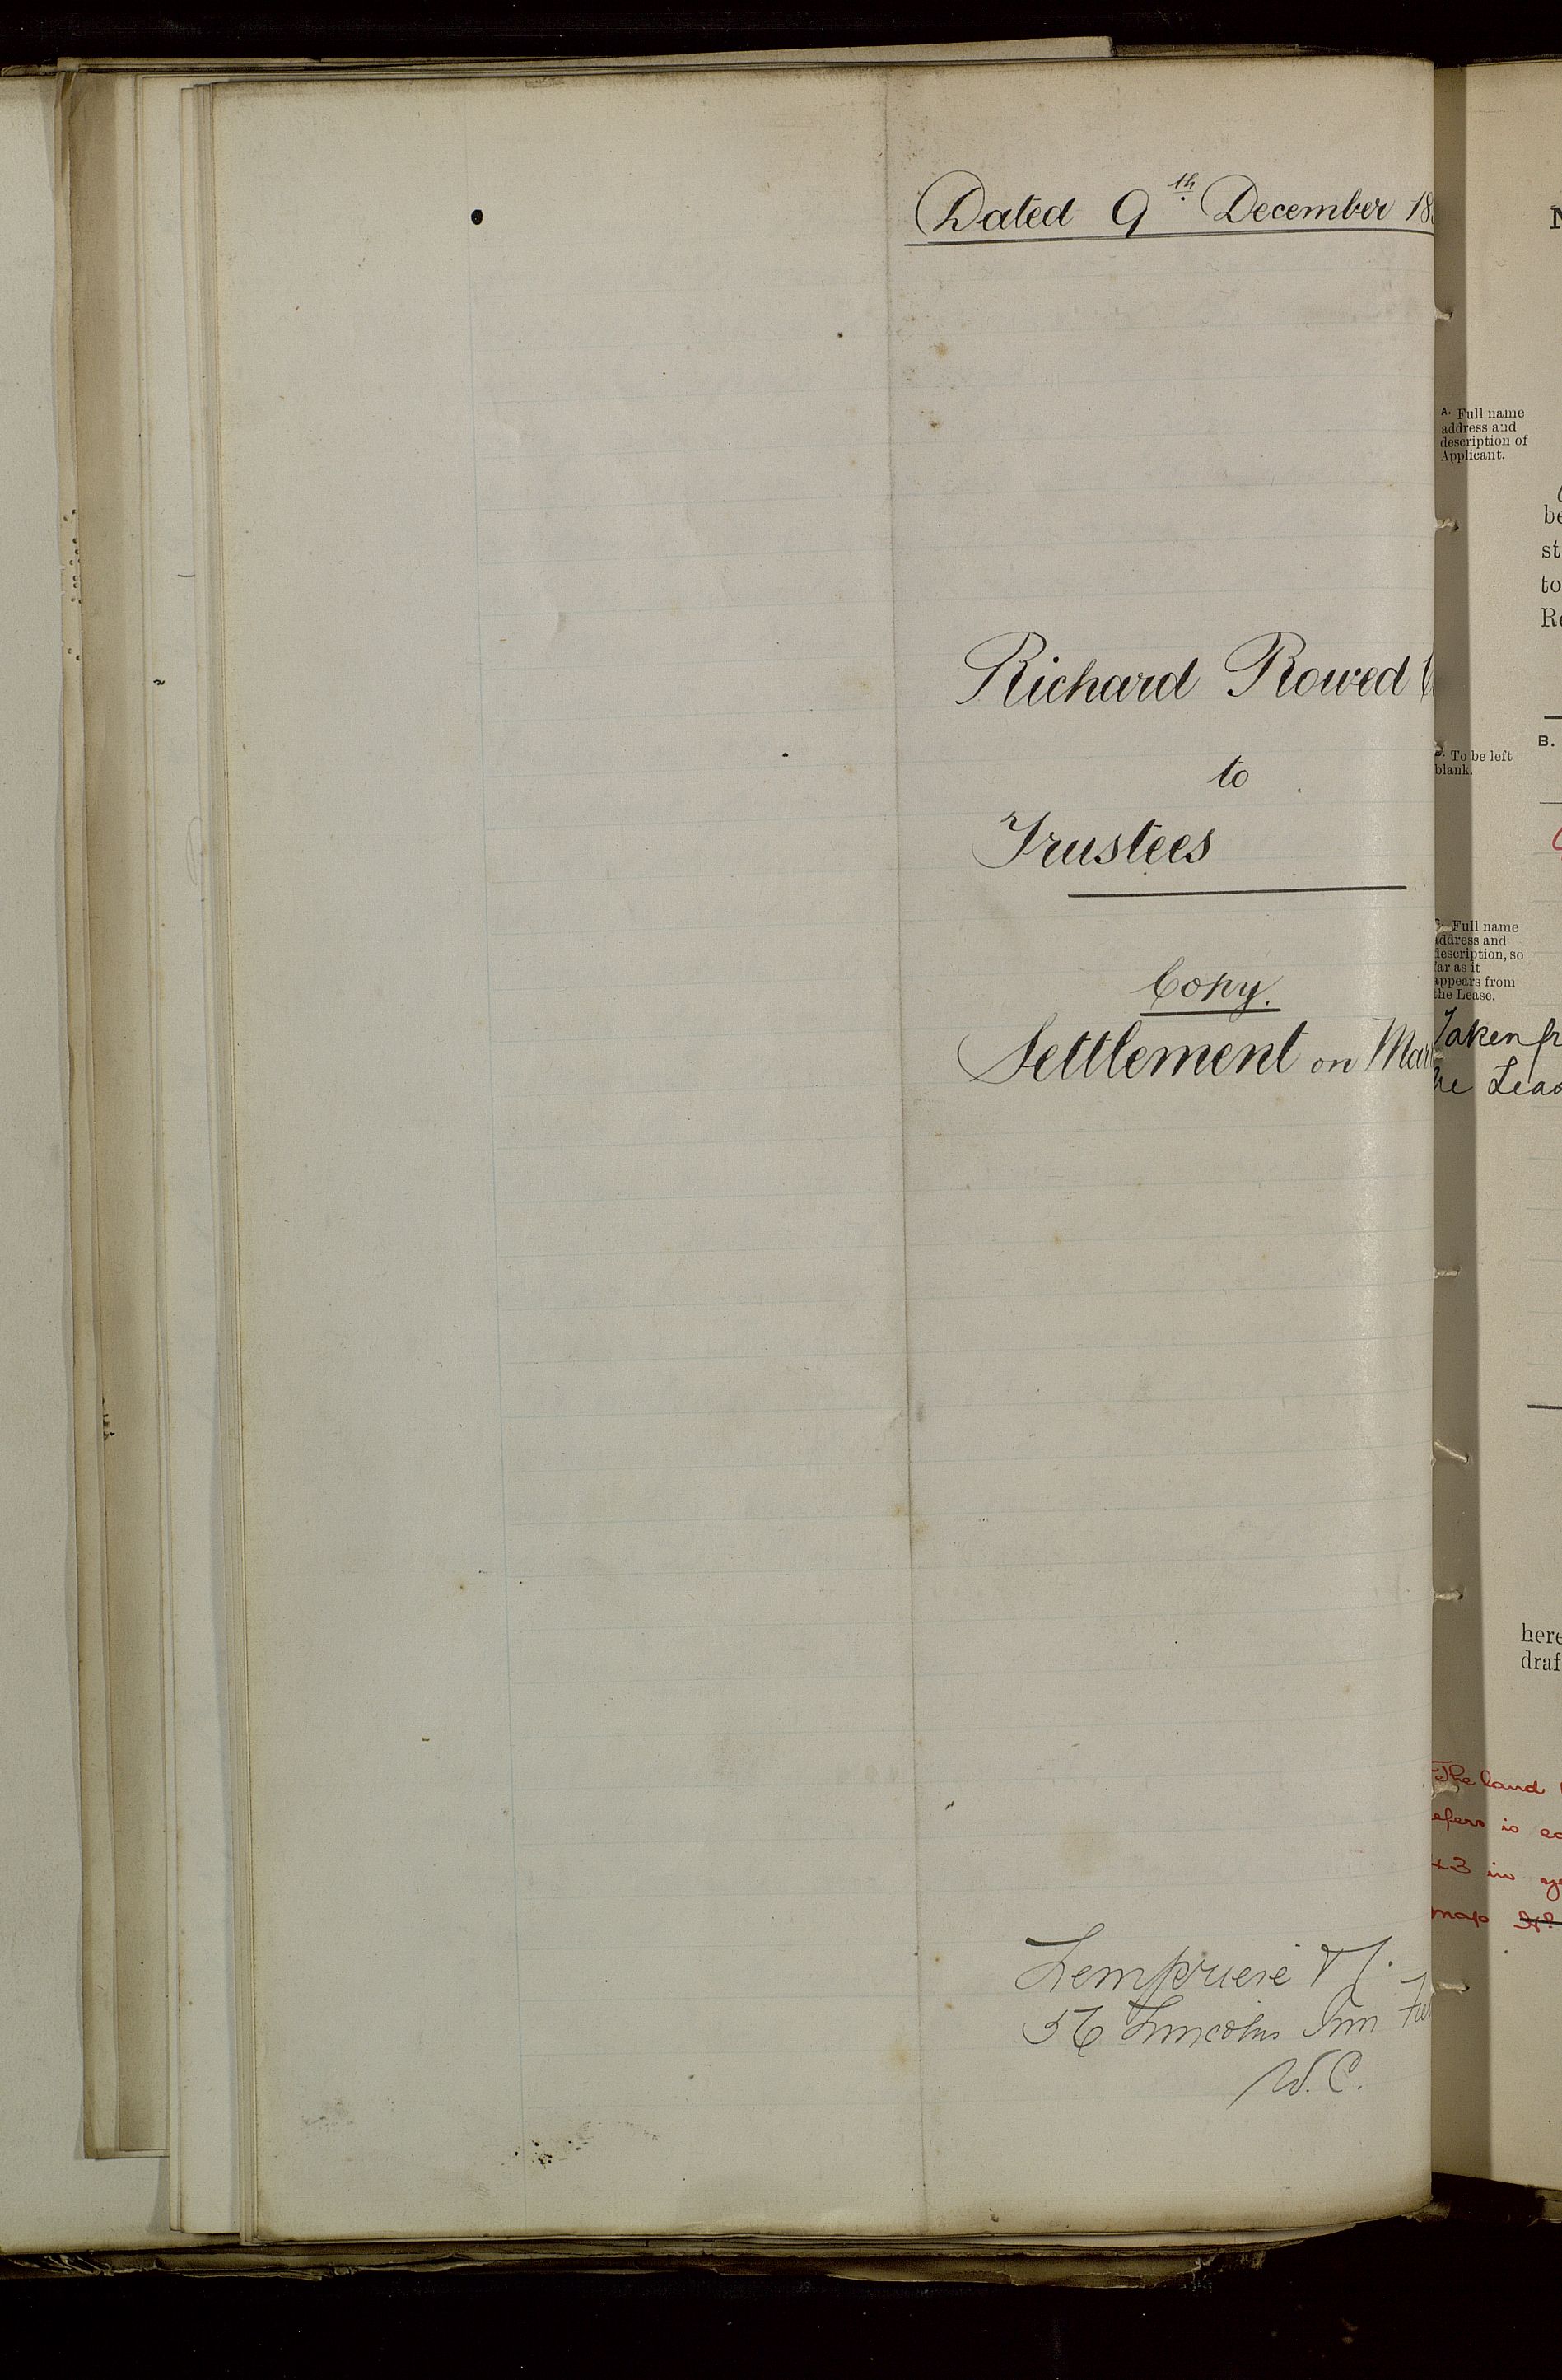 Dated 9th December 18
Richard Rowed
to
Trustees
Copy.
Settlement on Mar
Lempriere &
56 Lincolns Inn
W.C.
A. Full name
address and
description of
Applicant.
be
st
to
B.
To be left
blank.
Full name
address and
description, so
far as it
appears from
the Lease.
Taken fr
he Leas
here
draf
The land
efers is
43 in
map